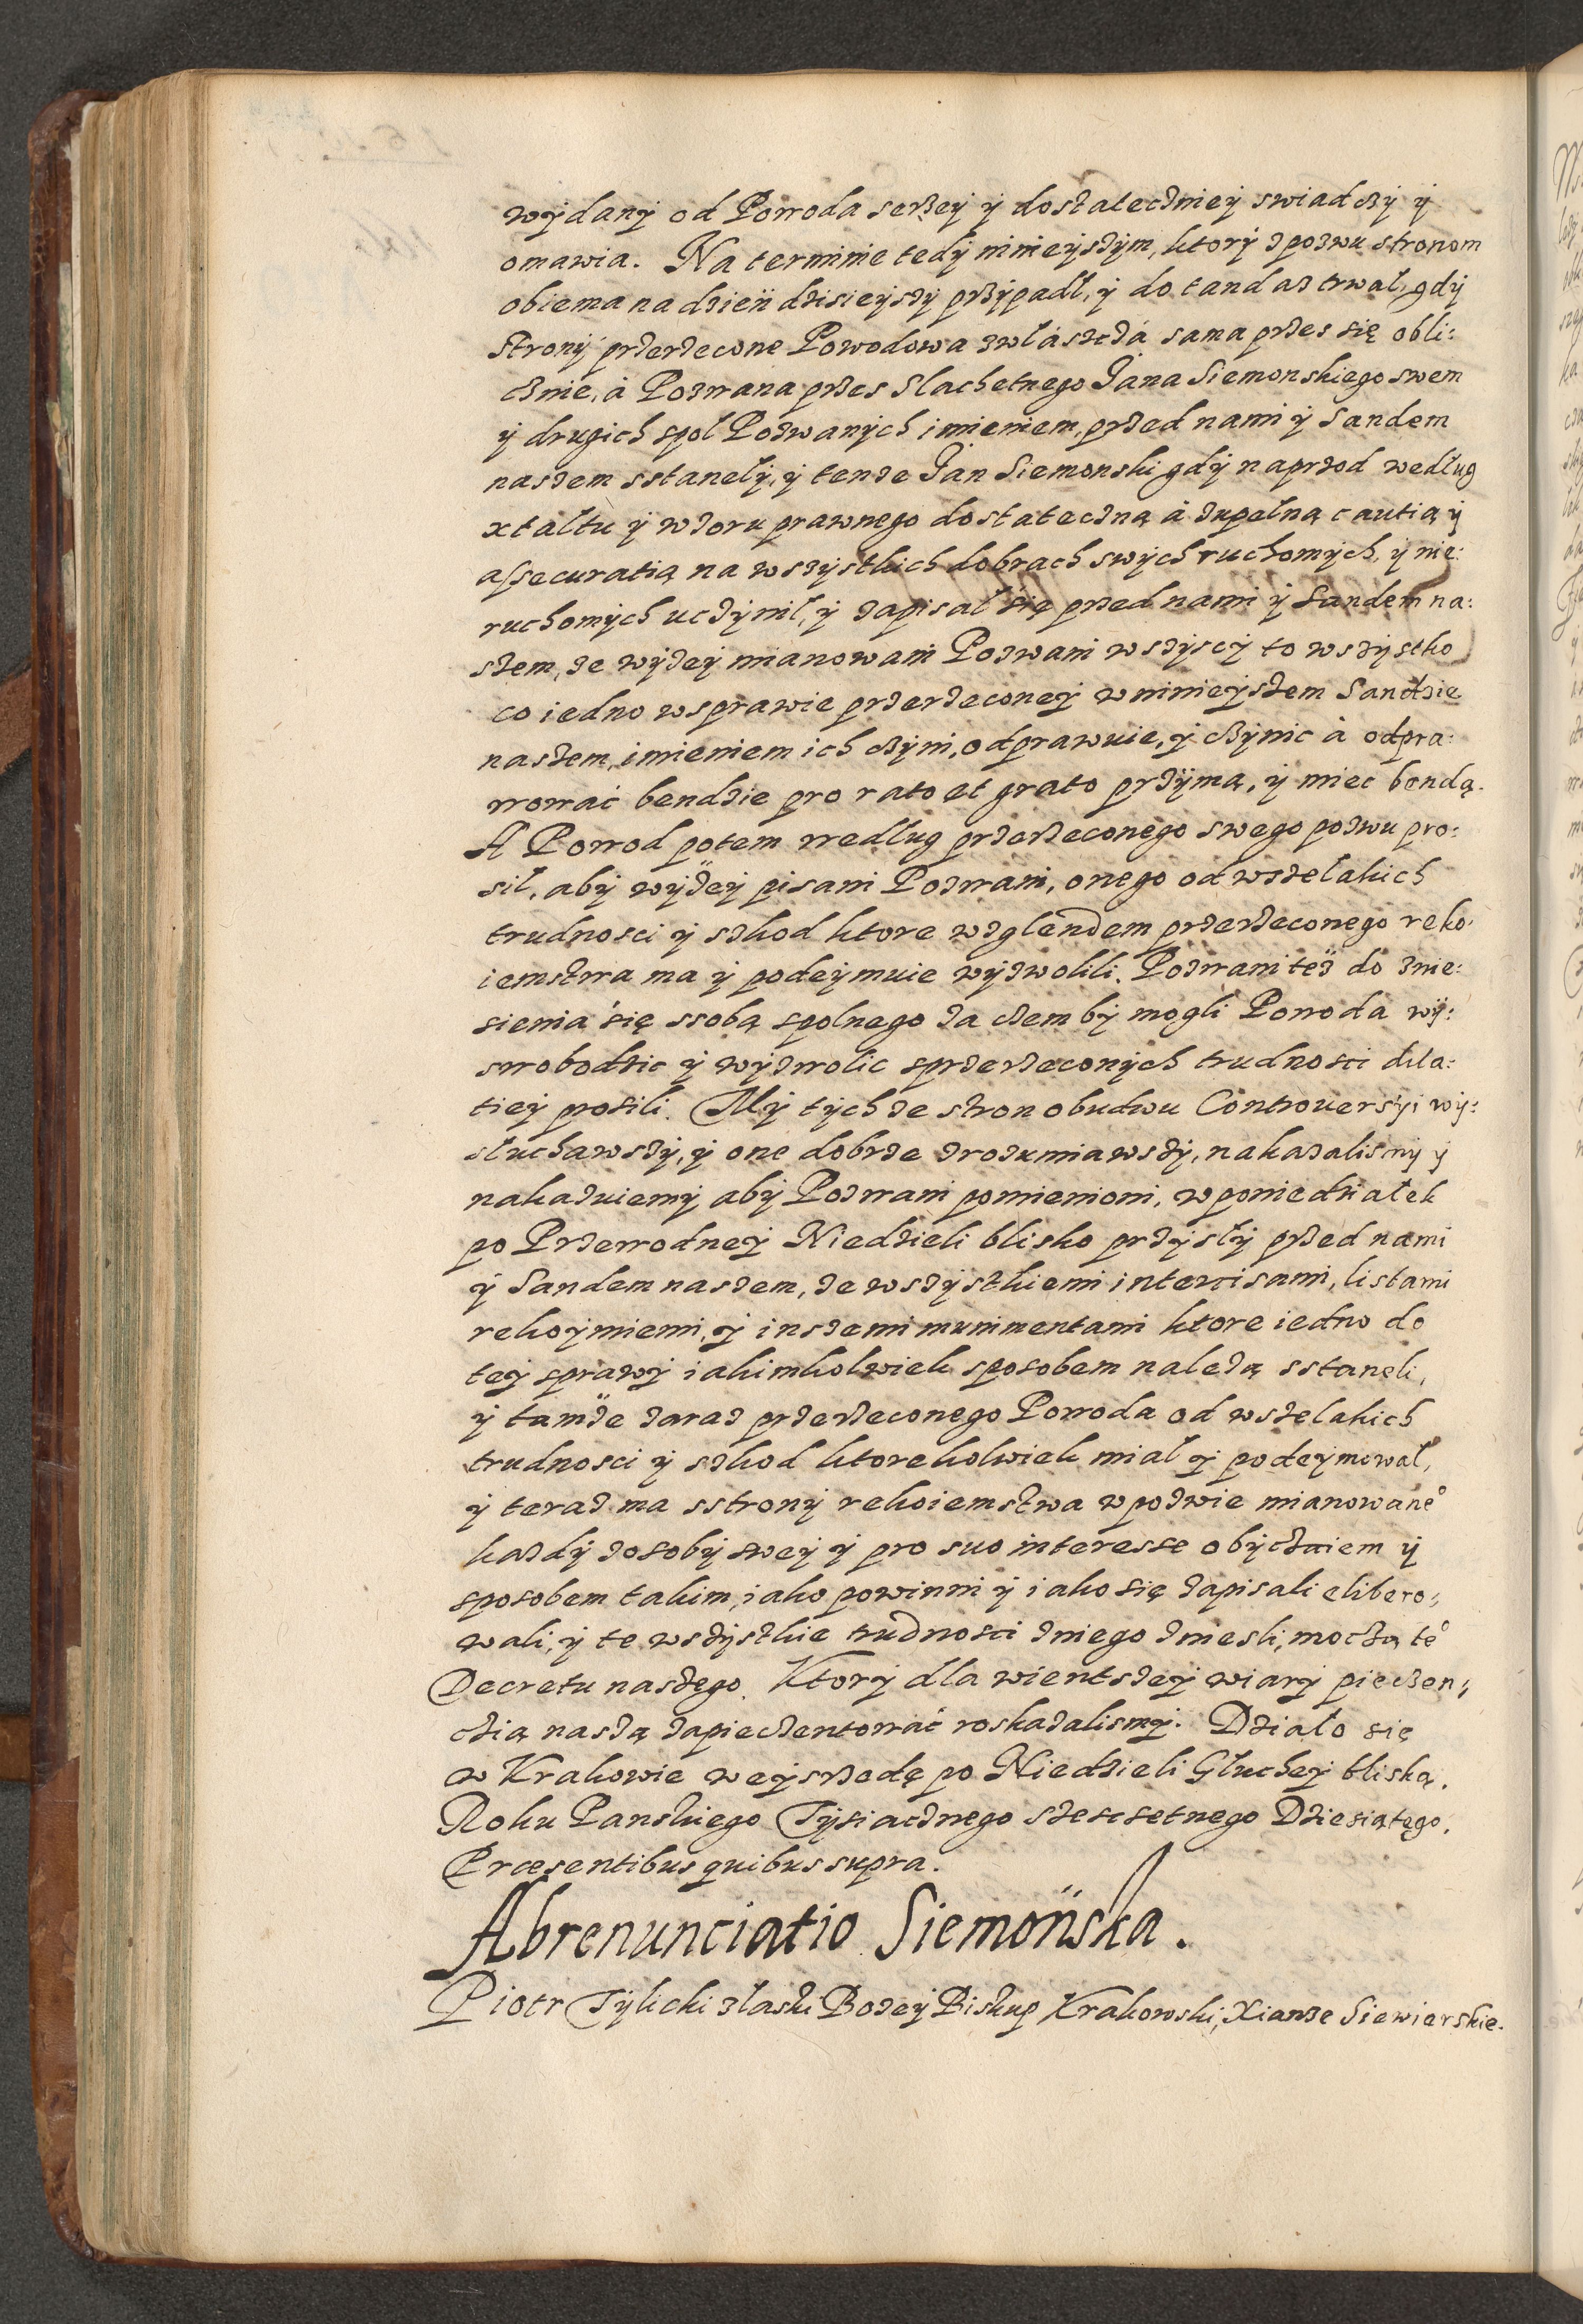 wÿdanÿ od Powoda serzeÿ ÿ dostatecznieÿ swiadczÿ ÿ
omawia. Na terminie tedÿ ninieÿszÿm, ktorÿ z pozwu stronom
obiema na dzień dzisieÿszÿ przÿpadł, ÿ do tand az trwał, gdÿ
stronÿ przerzeczone Powodowa zwłászczá sama przes się obli:
cznie, à Pozwana przes Slachetnego Jana Siemonskiego swem
ÿ drugich społ Pozwanÿch imieniem, przed nami ÿ Sandem
naszem sstanełÿ, ÿ tenze Jan Siemonski gdÿ naprzod według
xtałtu ÿ wzoru prawnego dostateczną à zupełną cautią ÿ
assecuratią na wszÿstkich dobrach swÿch ruchomÿch, ÿ nie:
ruchomÿch uczÿnił, ÿ zapisał się przed nami ÿ Sandem na:
szem, ze wÿzeÿ mianowani Pozwani wszÿscÿ to wszÿstko
co iedno w sprawie przerzeczoneÿ w ninieÿszem Sandzie
naszem, imieniem ich czÿni, odprawuie, ÿ czÿnic à odpra:
wować bendzie pro rato et grato przÿmą, ÿ miec bendą.
A Powod potem według przerzeczonego swego pozwu pro:
sił, abÿ wÿżeÿ pisani Pozwani, onego od wszelakich
trudnosci ÿ szkod ktore wzglendem przerzeczonego reko:
iemstwa ma ÿ podeÿmuie wÿzwolili. Pozwani też do znie:
sienia się ssobą spolnego za czem bÿ mogli Powoda wÿ:
swobodzic ÿ wÿzwolic sprzerzeczonÿch trudnosci dila:
tieÿ prosili. Mÿ tÿch ze stron obudwu Controuersÿi wÿ:
słuchawszÿ, ÿ one dobrze zrozumiawszÿ, nakazalismÿ ÿ
nakazuiemÿ abÿ Pozwani pomienioni, w poniedziałek
po Przewodneÿ Niedzieli blisko przÿszłÿ przed nami
ÿ Sandem naszem, ze wszÿstkiemi intercisami, listami
rekoÿmiemi, ÿ inszemi munimentami ktore iedno do
teÿ sprawÿ iakimkolwiek sposobem nalezą sstaneli,
ÿ tamże zaraz przerzeczonego Powoda od wszelakich
trudnosci ÿ szkod ktorekolwiek miał ÿ podeÿmował,
ÿ teraz ma sstronÿ rekoiemstwa w pozwie mianowane°
kazdÿ zosobÿ sweÿ ÿ pro suo interesse obÿczaiem ÿ
sposobem takim, iako powinni ÿ iako się zapisali elibero:
wali, ÿ te wszÿstkie trudnosci zniego zniesli, moczą te°
Decretu naszego. Ktorÿ dla wientszeÿ wiarÿ pieczen:
czią naszą zapieczentować roskazalismÿ. Działo się
w Krakowie weÿsrzedę po Niedzieli Głucheÿ bliską.
Roku Panskiego Tÿsiacznego szescsetnego Dziesiątego.
Præsentibus quibus supra.
Abrenunciatio Siemońska.
Piotr Tÿlicki złaski Bozeÿ Biskup Krakowski, Xianze Siewierskie.